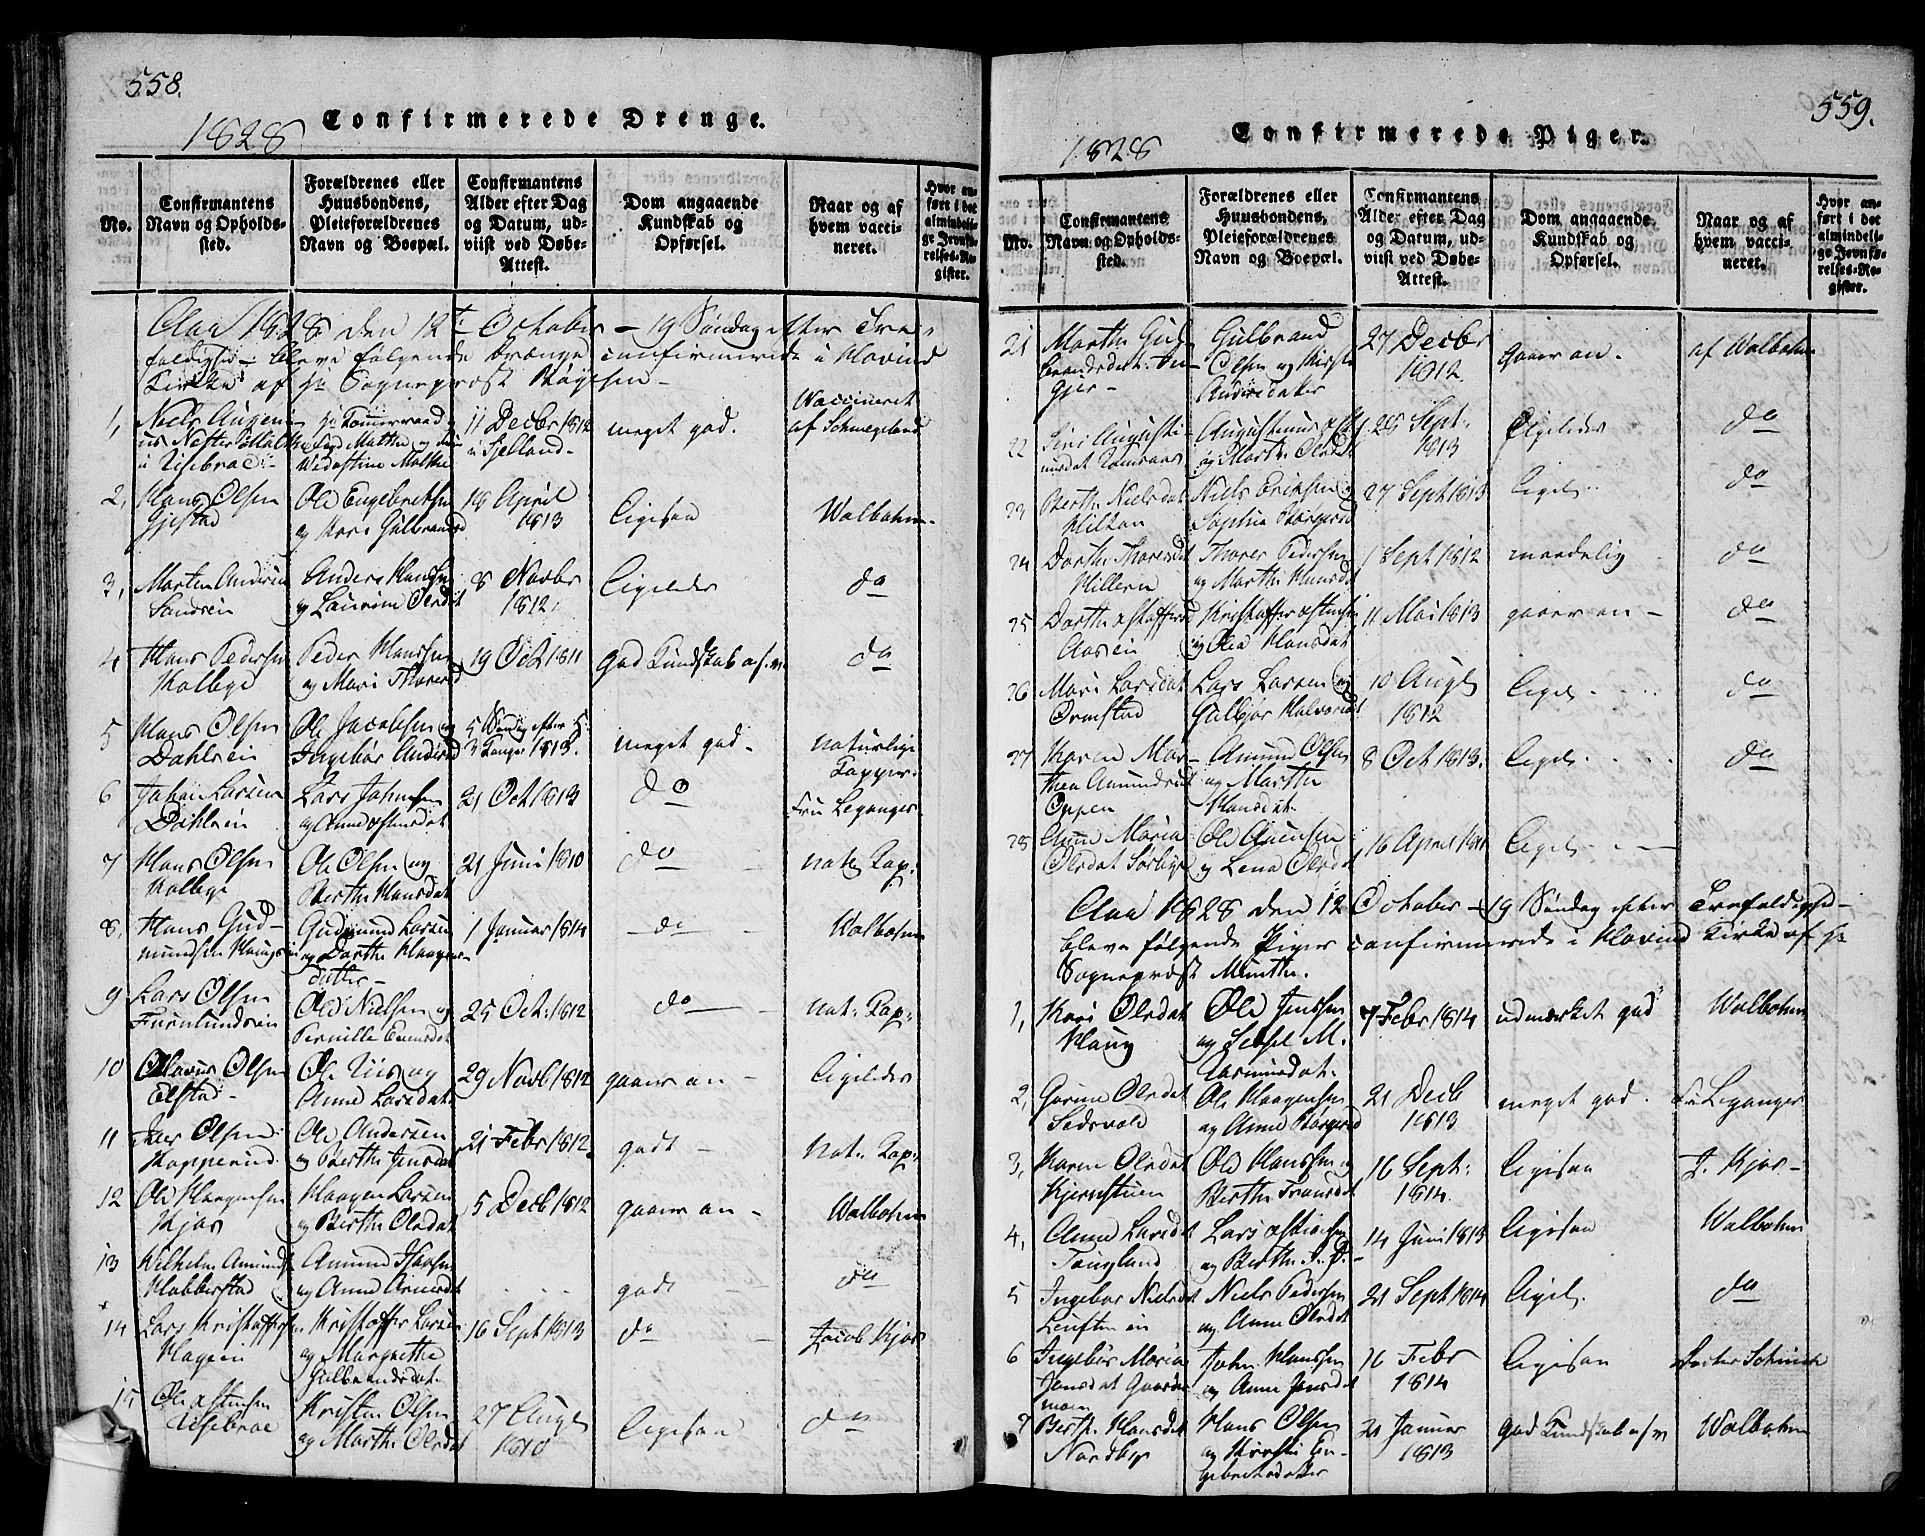 558.
1828
Confirmerede Drenge.
No.
Confirmantens
Navn og Opholds-
sted.
Forældrenes eller
Huusbondens,
Pleieforældrenes
Navn og Boepæl.
Confirmantens
Alder efter Dag
og Datum, ud-
viist ved Døbe-
Attest.
Dom angaaende
Kundskab og
Opførsel.
Naar og af
hvem vacci-
neret.
Hvor an-
ført i det
almindeli-
ge Jevnfø-
relses-Re-
gister.
1828 den 12t October - 19 Søndag efter Tre-
foldighed bleve følgende Drænge confirmerede i Hovind
Kirke af Hr Sognepræst
1, Niels
11 Decbr 1812
i Sjelland
meget god.
Vaccineret
af
2, Hans Olsen
Gjestad
Ole Engebretsen
og Kari Gulbrandsd
18 April
1813
ligesaa
Walbohm.
3, Morten Andersen
Anders Hansen
og Laurine Olsdat
8 Novbr
1812.
ligeledes
do
4 Hans Pedersen
Kolbye
Peder Hanssen
og Mari Thoresd
19 Oct 1811
god Kundskab
do
5 Hans Olsen
Dahlseie
Ole Jacobsen og
Ingebor Andersd
1813.
meget god.
naturlige
Kopper
6 Johan Larsen
Dahlseie
Lars Johnsen
og Anne
21 Oct 1813
do
Fru Leganger
7 Hans Olsen
Kolbye
Ole Olsen og
Berthe Hansdat
21 Juni 1810
do
nat. Kop:
8. Hans Gud-
mundsen
Gudmund Larsen
og Dorthe Haagens-
datter
1 Januar 1814
do
Walbohm
9 Lars Olsen
Ole Nielsen og
Pernille
25 Oct: 1812
do
nat: Kop:
10 Olsen
Elstad
og
Anne Larsdat.
29 Novb 1812
gaaer an
ligeledes
11 Iver Olsen
Kopperud
Ole Andersen
og Berthe Jensdat
21 Febr 1812.
godt
nat. Kop:
12 Ole Haagensen
Kjos
Haagen Larsen
og Berthe Olsdat
5 Decb 1812
gaaer an
Walbohm
13 Wilhelm Amunds
Habberstad
Amund
og Anne
godt
do
14 Lars Kristoffersen
Hageeie
Kristoffer Larsen
og Margrethe
Gulbrandsdat.
16 Sept 1813
do
Jacob Kjos
15 Ole
Kristen Olsen
og Marthe Olsdat
27 Augs
1810
ligesaa
do
559.
1828
Confirmerede Piger.
No.
Confirmantens
Navn og Opholds-
sted.
Forældrenes eller
Huusbondens,
Pleieforældrenes
Navn og Boepæl.
Confirmantens
Alder efter Dag
og Datum, ud-
viist ved Døbe-
Attest.
Dom angaaende
Kundskab og
Opførsel.
Naar og af
hvem vacci-
neret.
Hvor an-
ført i det
almindeli-
ge Jevnfø-
relses-Re-
gister.
21 Marthe Gul-
brandsdat.
Gulbrand
Olsen og Kirsti
Andersdater
27 Decbr
1812.
gaaer an.
af Walbohm
22 Siri Augusti-
nusdat
Augustinus
og Marthe Olsdat
28 Sept.
1813
ligeledes
do
23 Berthe Nielsdat
Hilton
Niels Eriksen og
Sophia Børgesd
27 Sept 1813
ligel.
do
24 Dorthe Thoresdat
Hilleren
Thorer Pedersen
og Marthe Hansdat
1 Sept 1812
maadelig
do
25 Dorthe
Aaseie
Kristoffer
og Olea Hansdat
11 Mai 1813
gaaer an
do
26 Mari Larsdat
Ormstad
Lars Larsen og
Gulbjør Halvorsdat
10 Augs
1812
ligel.
do
27 Karen Mar-
thea Amundsdat
Oppen
Amund Olsen
og Marthe
Hansdat.
8 Oct 1813.
ligel.
do
28 Anne Maria
Olsdat Sørbye
Ole
og Lena Olsdat
16 April 1811
ligel.
1828 den 12 October - 19 Søndag efter Trefoldighed
bleve følgende Piger confirmerede i Hovind Kirke af Hr
Sognepræst
1, Kari Olsdat
Haug
Ole Jenssen
og Sebsel M.
Rasmusdat.
7 Febr 1814
udmærket god
Walbohm
2, Gorine Olsdat
Ole Haagensen
og Anne Børgesd
21 Decb
1813
meget god.
Fr. Leganger
3, Karen Olsdat
Kjernstuen
Ole Hanssen og
Berthe Fransdat
16 Sept:
1814.
ligesaa
J. Kjos
4, Anne Larsdat
Tougland
Lars
og Berthe
14 Juni 1813
ligesaa
Walbohm
5 Ingebor Nielsdat
Niels Pedersen
og Anne Olsdat
21 Sept 1814
ligel.
do
6 Ingebor Maria
Jonsdat
moen
John Hanssen
og Anne Jensdat
16 Febr
1814
ligesaa
7 Berthe Hansdat
Nordbye
Hans Olsen
og Kirsti En-
gebretsdatter
21 Januar
1813
god Kundskab
Walbohm